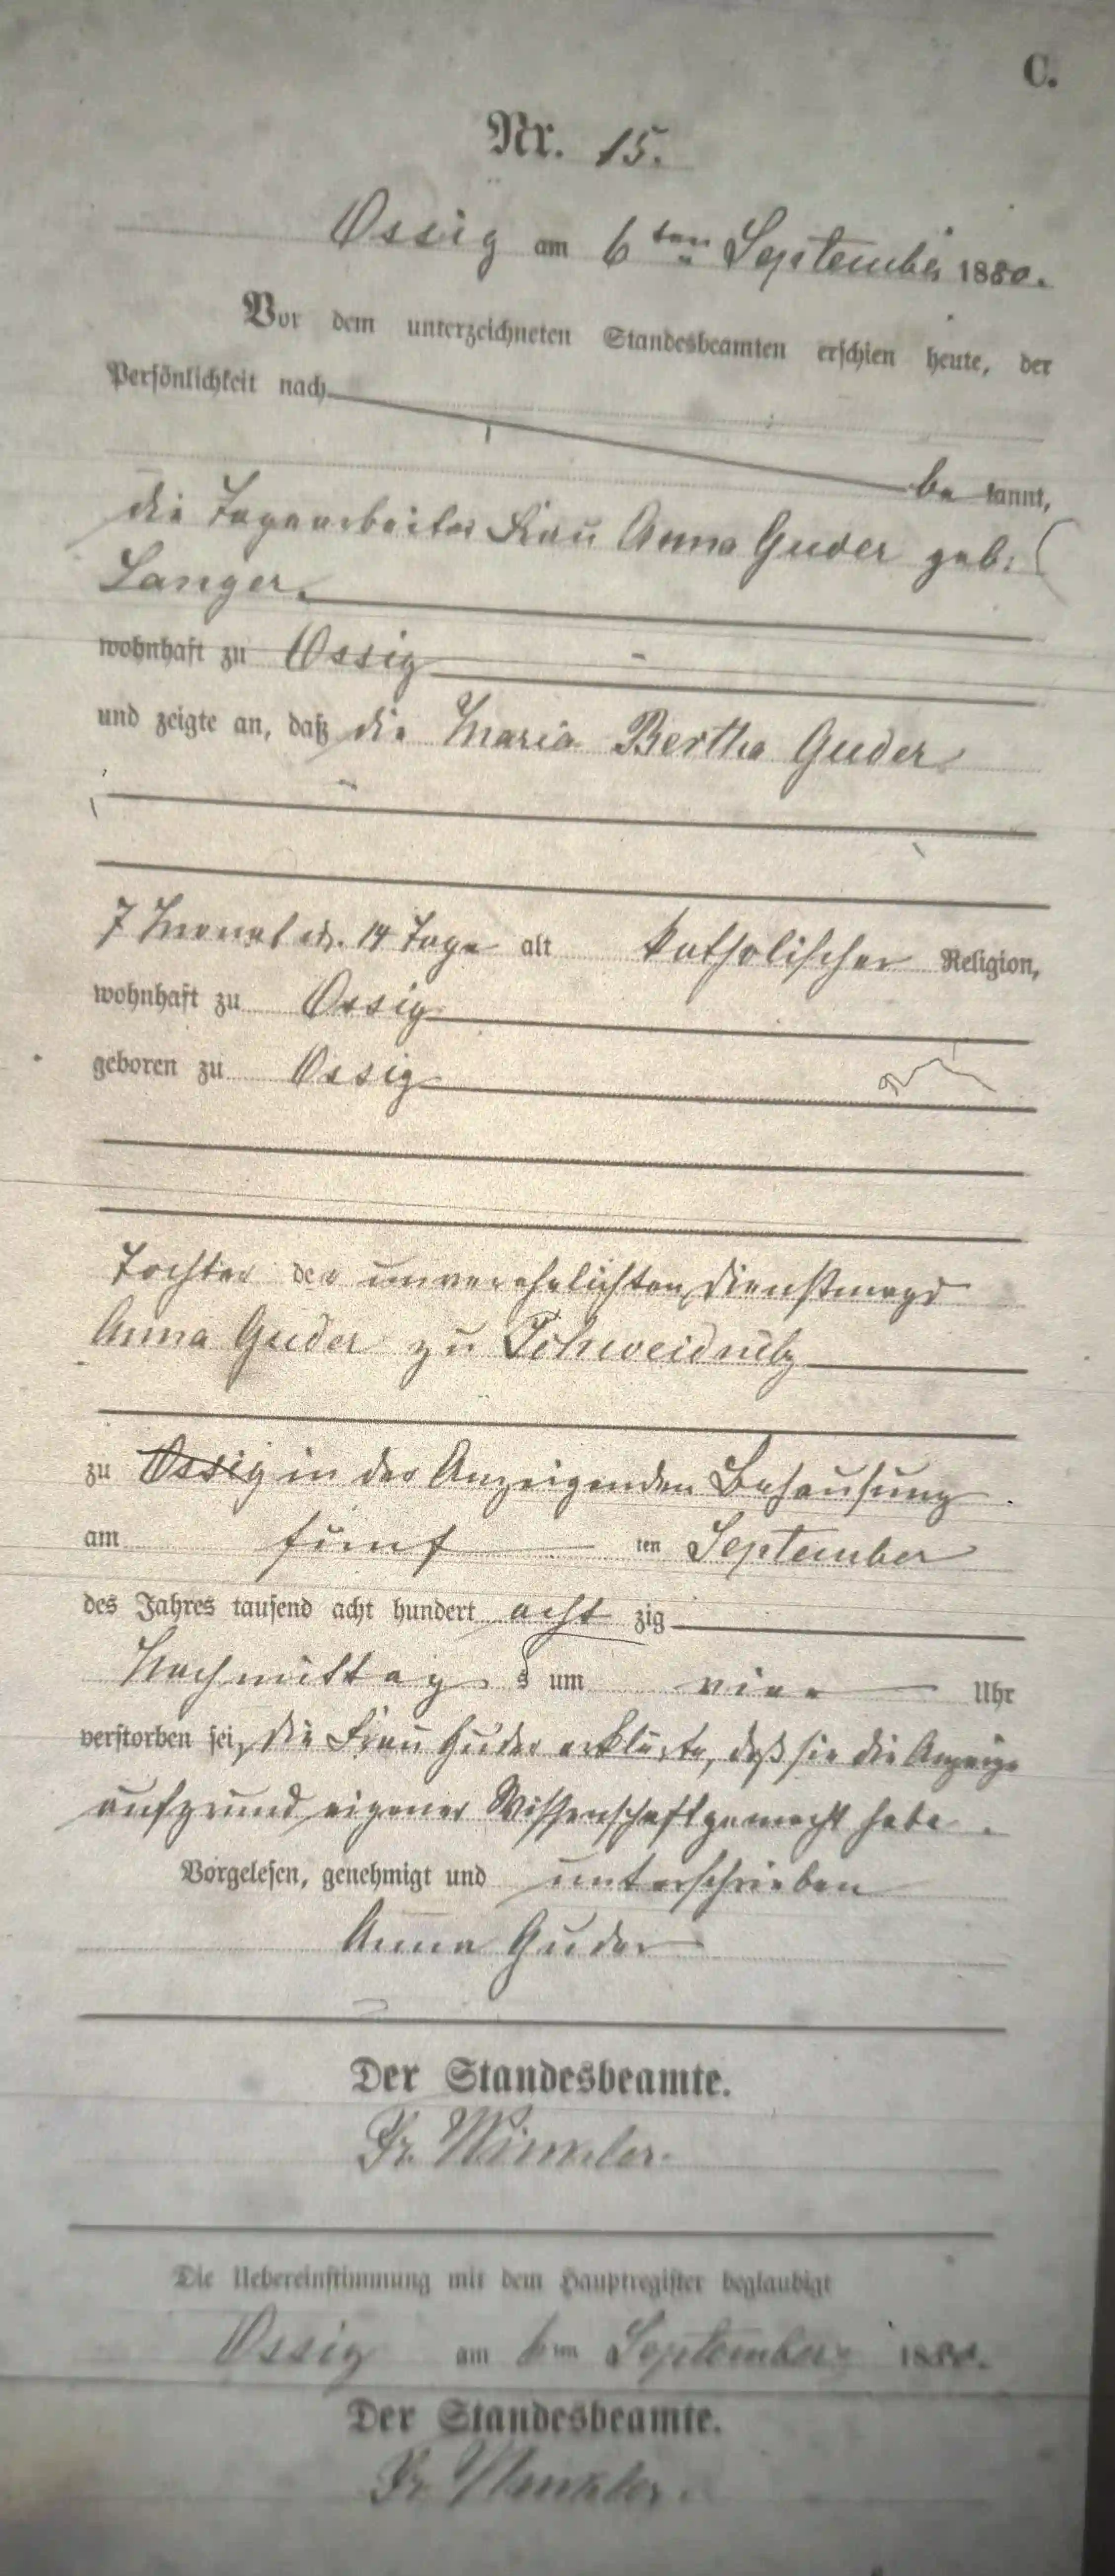 C.
Nr. 15.
Ossig am 6ten September 1880.
Vor dem unterzeichneten Standesbeamten erschien heute, der
Persönlichkeit nach
be kannt,
die Tagearbeiter Frau Anna Guder geb.
Langer.
wohnhaft zu Ossig
und zeigte an, daß die Maria Bertha Guder
7 Monat 14 Tage alt katholischer Religion,
wohnhaft zu Ossig
geboren zu Ossig
Tochter der unverehelichten Dienstmagd
Anna Guder zu Schweidnitz
zu Ossig in der Anzeigenden Behausung
am fünf ten September
des Jahres tausend acht hundert acht zig
Nachmittag s um vier Uhr
verstorben sei, die Frau Guder erklärte, daß sie die Anzeige
aufgrund eigener Wissenschaft gemacht habe.
Vorgelesen, genehmigt und unterschrieben
Anna Guder
Der Standesbeamte.
Fr. Winkler.
Die Uebereinstimmung mit dem Hauptregister beglaubigt
Ossig am 6ten September 1880.
Der Standesbeamte.
Fr. Winkler.